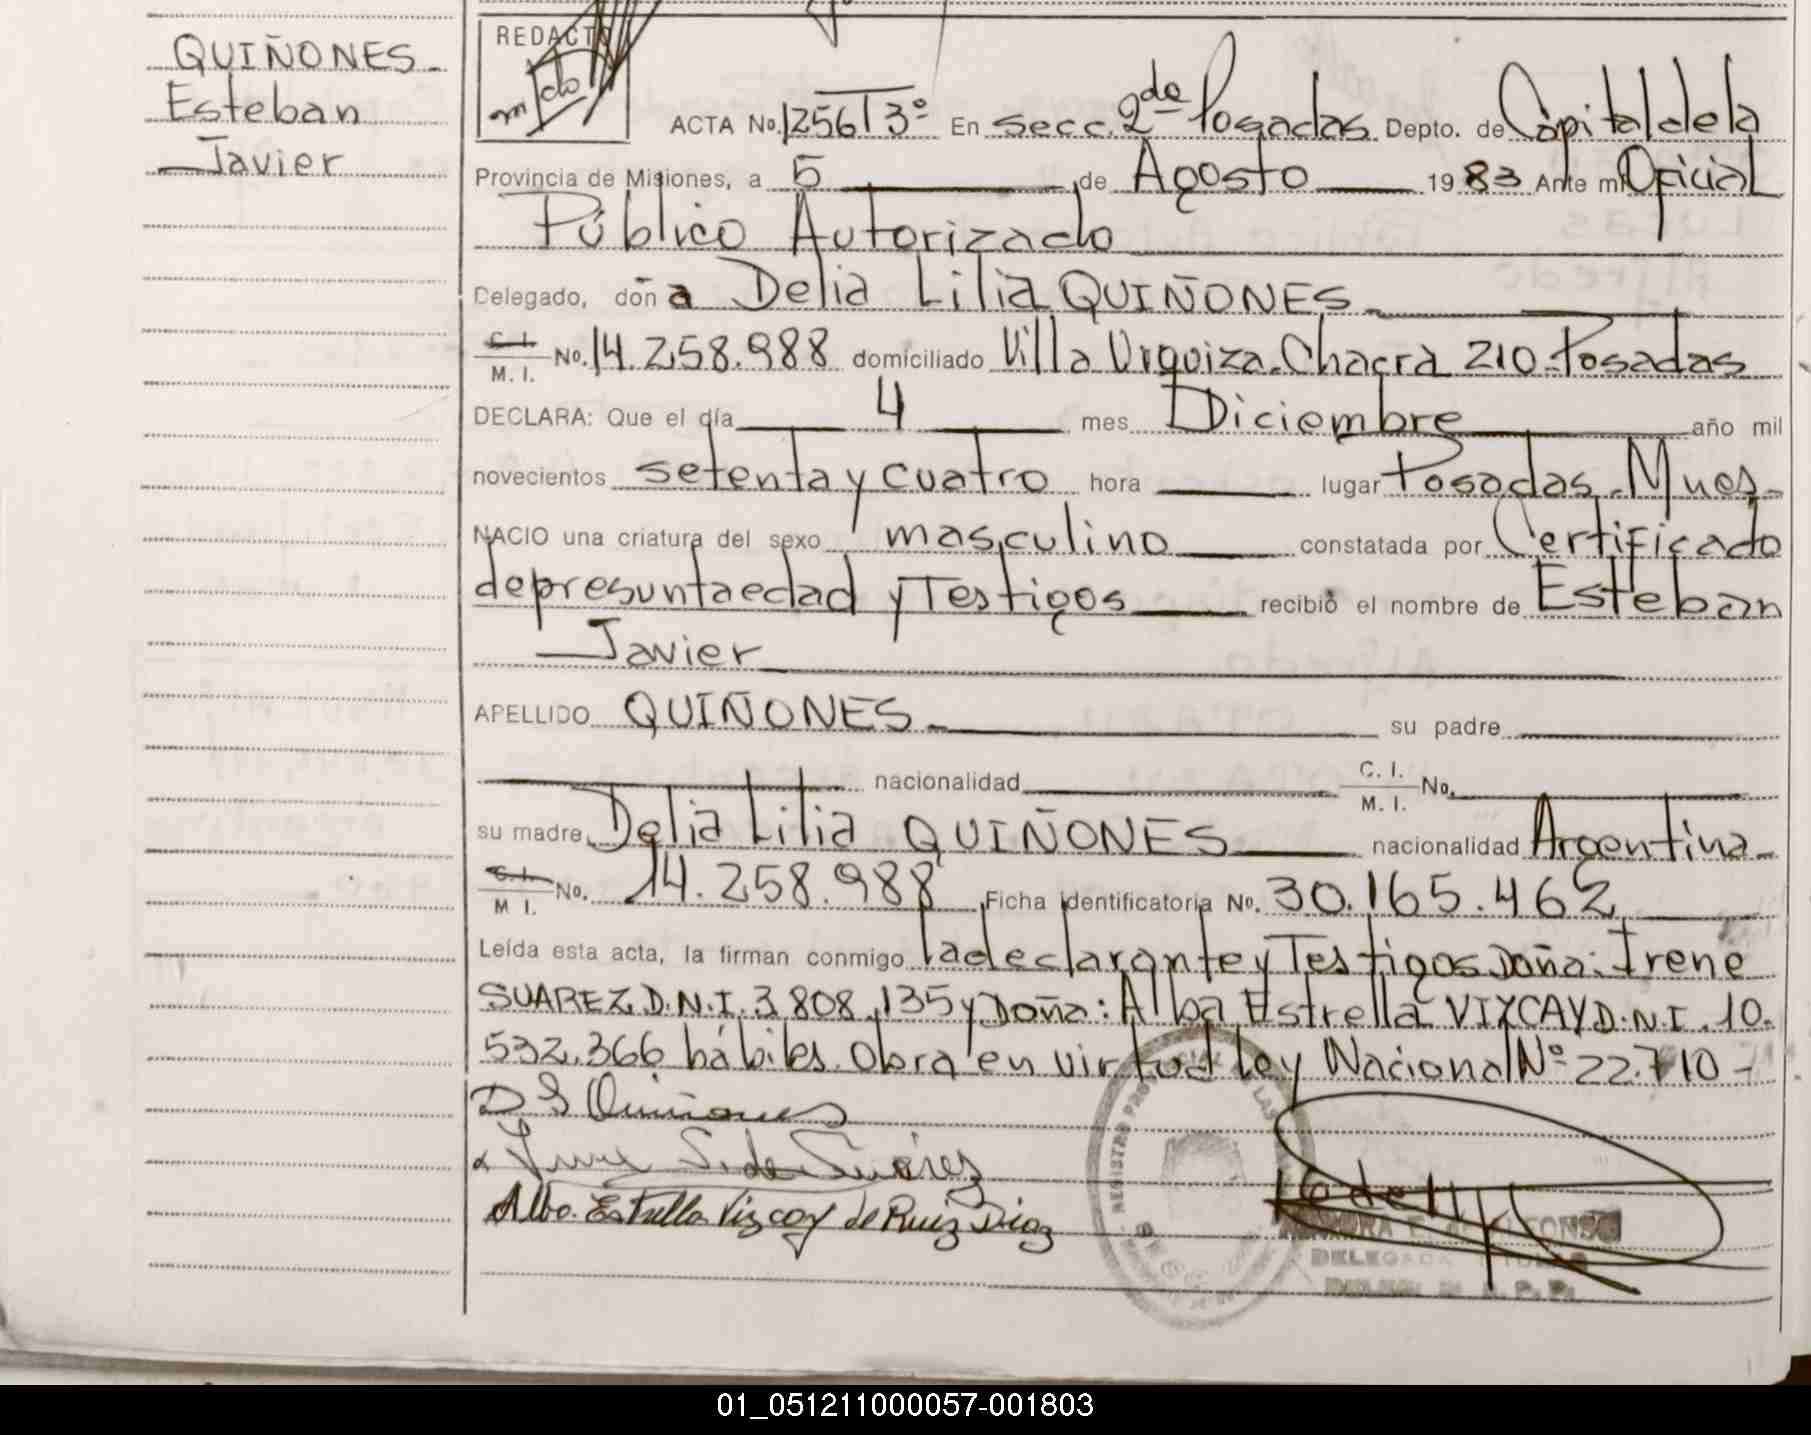 QUIÑONES
Esteban
Javier
REDACTO
ACTA No. 1256 T 3º En secc. 2da Posadas Depto. de Capital de la
Provincia de Misiones, a 5 de Agosto 1983 Ante mi Oficial
Público Autorizado
Delegado, don a Delia Lilia QUIÑONES
C. I. M. I. No. 14.258.988 domiciliado Villa Urquiza. Chacra 210. Posadas
DECLARA: Que el día 4 mes Diciembre año mil
novecientos setenta y cuatro hora lugar Posadas. Mnes.
NACIO una criatura del sexo masculino constatada por Certificado
de presunta edad y Testigos recibió el nombre de Esteban
Javier
APELLIDO QUIÑONES su padre
nacionalidad C. I. M. I. No.
su madre Delia Lilia QUIÑONES nacionalidad Argentina
C. I. M I. No. 14.258.988 Ficha identificatoria No. 30.165.462
Leída esta acta, la firman conmigo la declarante y Testigos Doña: Irene
SUAREZ D.N.I. 3.808.135 y Doña: Alba Estrella VIZCAY D.N.I. 10.
532.366 hábiles. Obra en virtud Ley Nacional Nº 22.710
D L Quiñones
Irene S. de Suárez
Alba Estrella Vizcay de Ruiz Diaz
REGISTRO PROVINCIAL DE LAS
DELEGADA
01_051211000057-001803